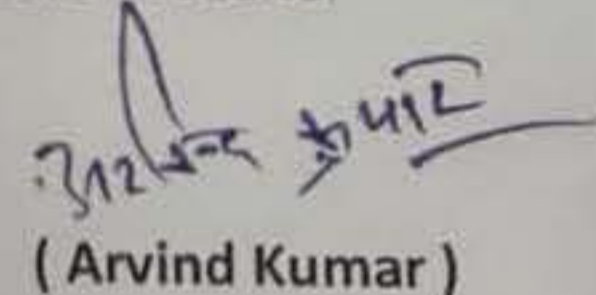 अरविन्द कुमार
( Arvind Kumar )